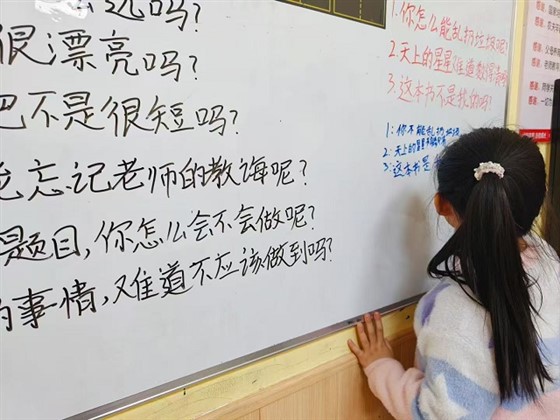 远吗?
很漂亮吗?
巴不是很短吗?
能忘记老师的教诲呢?
题目,你怎么会不会做呢?
的事情,难道不应该做到吗?
1.你怎么能乱扔垃圾呢?
2.天上的星星难道数得
3.这本书不是我的吗?
1:你不能乱扔垃圾
2:天上的星星
3:这本书是